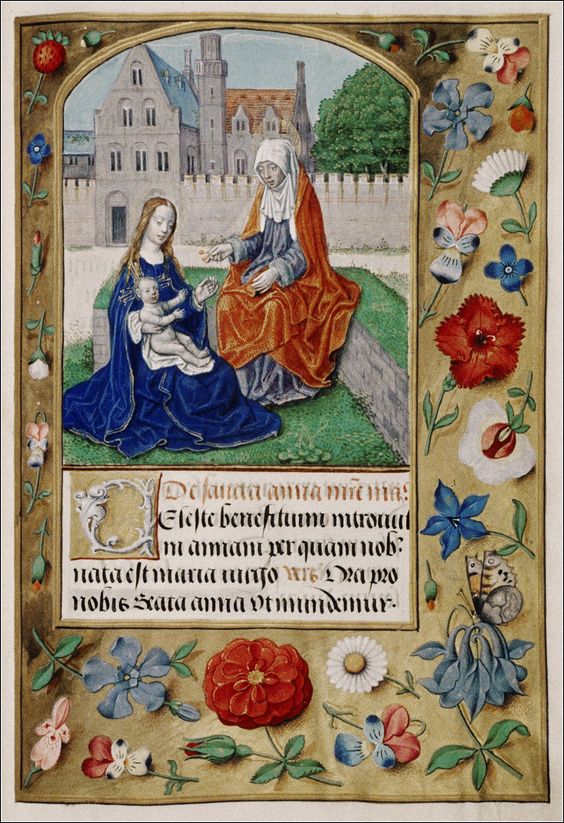 De sancta anna mr̄e ma:
Celeste benefitium introiuit
in annam per quam nob:
nata est maria uirgo vers Ora pro
nobis Beata anna vt mundemur.